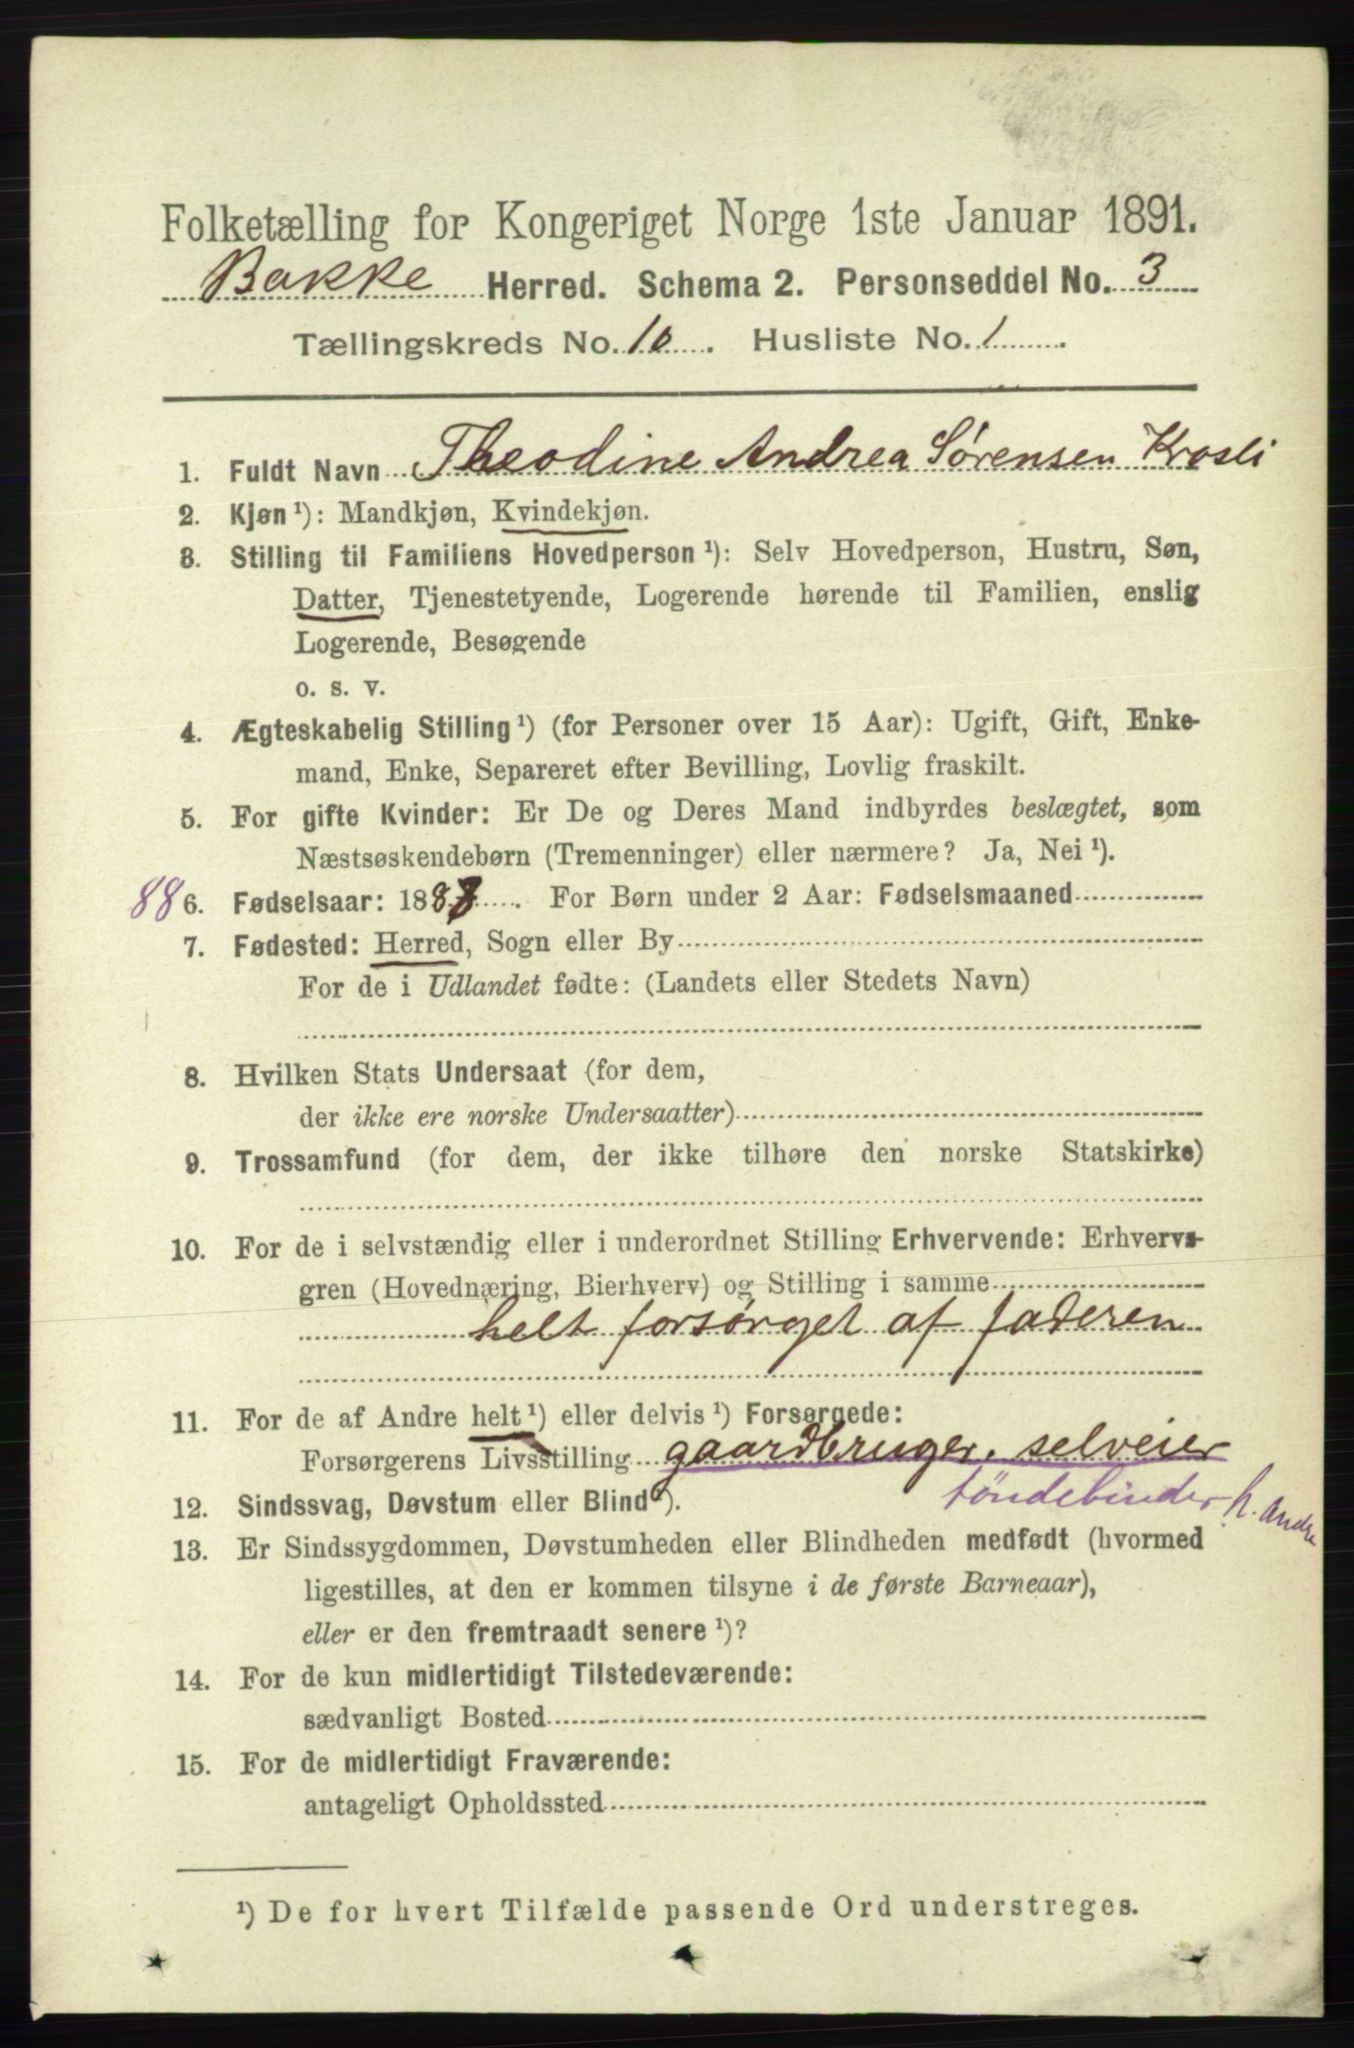 Folketælling for Kongeriget Norge 1ste Januar 1891.
Bakke Herred. Schema 2. Personseddel No. 3
Tællingskreds No. 10. Husliste No. 1.
1. Fuldt Navn Theodine Andrea Sørensen Krosli
2. Kjøn ¹): Mandkjøn, Kvindekjøn.
3. Stilling til Familiens Hovedperson ¹): Selv Hovedperson, Hustru, Søn,
Datter, Tjenestetyende, Logerende hørende til Familien, enslig
Logerende, Besøgende
o. s. v.
4. Ægteskabelig Stilling ¹) (for Personer over 15 Aar): Ugift, Gift, Enke-
mand, Enke, Separeret efter Bevilling, Lovlig fraskilt.
5. For gifte Kvinder: Er De og Deres Mand indbyrdes beslægtet, som
Næstsøskendebørn (Tremenninger) eller nærmere? Ja, Nei ¹).
88 6. Fødselsaar: 188 . For Børn under 2 Aar: Fødselsmaaned
7. Fødested: Herred, Sogn eller By
For de i Udlandet fødte: (Landets eller Stedets Navn)
8. Hvilken Stats Undersaat (for dem,
der ikke ere norske Undersaatter)
9. Trossamfund (for dem, der ikke tilhøre den norske Statskirke)
10. For de i selvstændig eller i underordnet Stilling Erhvervende: Erhvervs-
gren (Hovednæring, Bierhverv) og Stilling i samme
helt forsørget af faderen
11. For de af Andre helt ¹) eller delvis ¹) Forsørgede:
Forsørgerens Livsstilling gaardbruger, selveier
tøndebinder h. Andre
12. Sindssvag, Døvstum eller Blind ¹).
13. Er Sindssygdommen, Døvstumheden eller Blindheden medfødt (hvormed
ligestilles, at den er kommen tilsyne i de første Barneaar),
eller er den fremtraadt senere ¹)?
14. For de kun midlertidigt Tilstedeværende:
sædvanligt Bosted
15. For de midlertidigt Fraværende:
antageligt Opholdssted
¹) De for hvert Tilfælde passende Ord understreges.